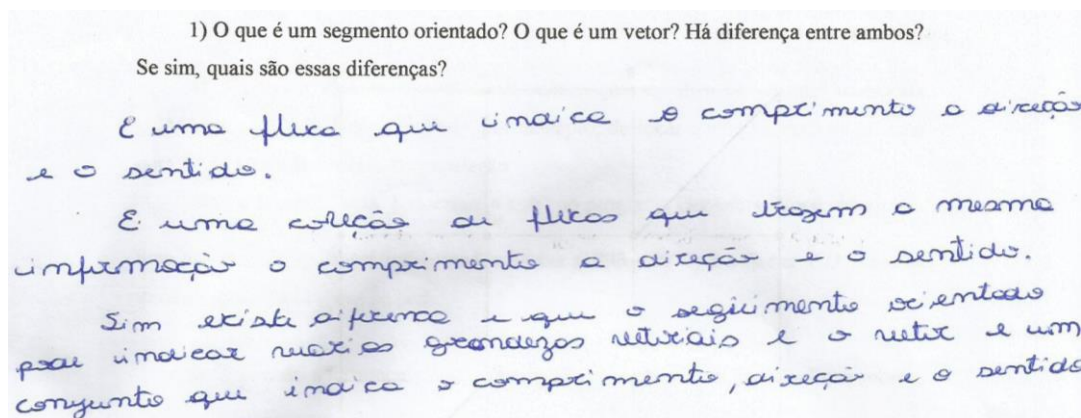 1) O que é um segmento orientado? O que é um vetor? Há diferença entre ambos?
Se sim, quais são essas diferenças?
É uma flixa que indica o comprimento a direção
e o sentido.
É uma coleção de flixas que trazem a mesma
informação o comprimento a direção e o sentido.
Sim existe diferença e que o seguimento orientado
pode indicar varias grandezas vetoriais e o vetor e um
conjunto que indica o comprimento, direção e o sentido